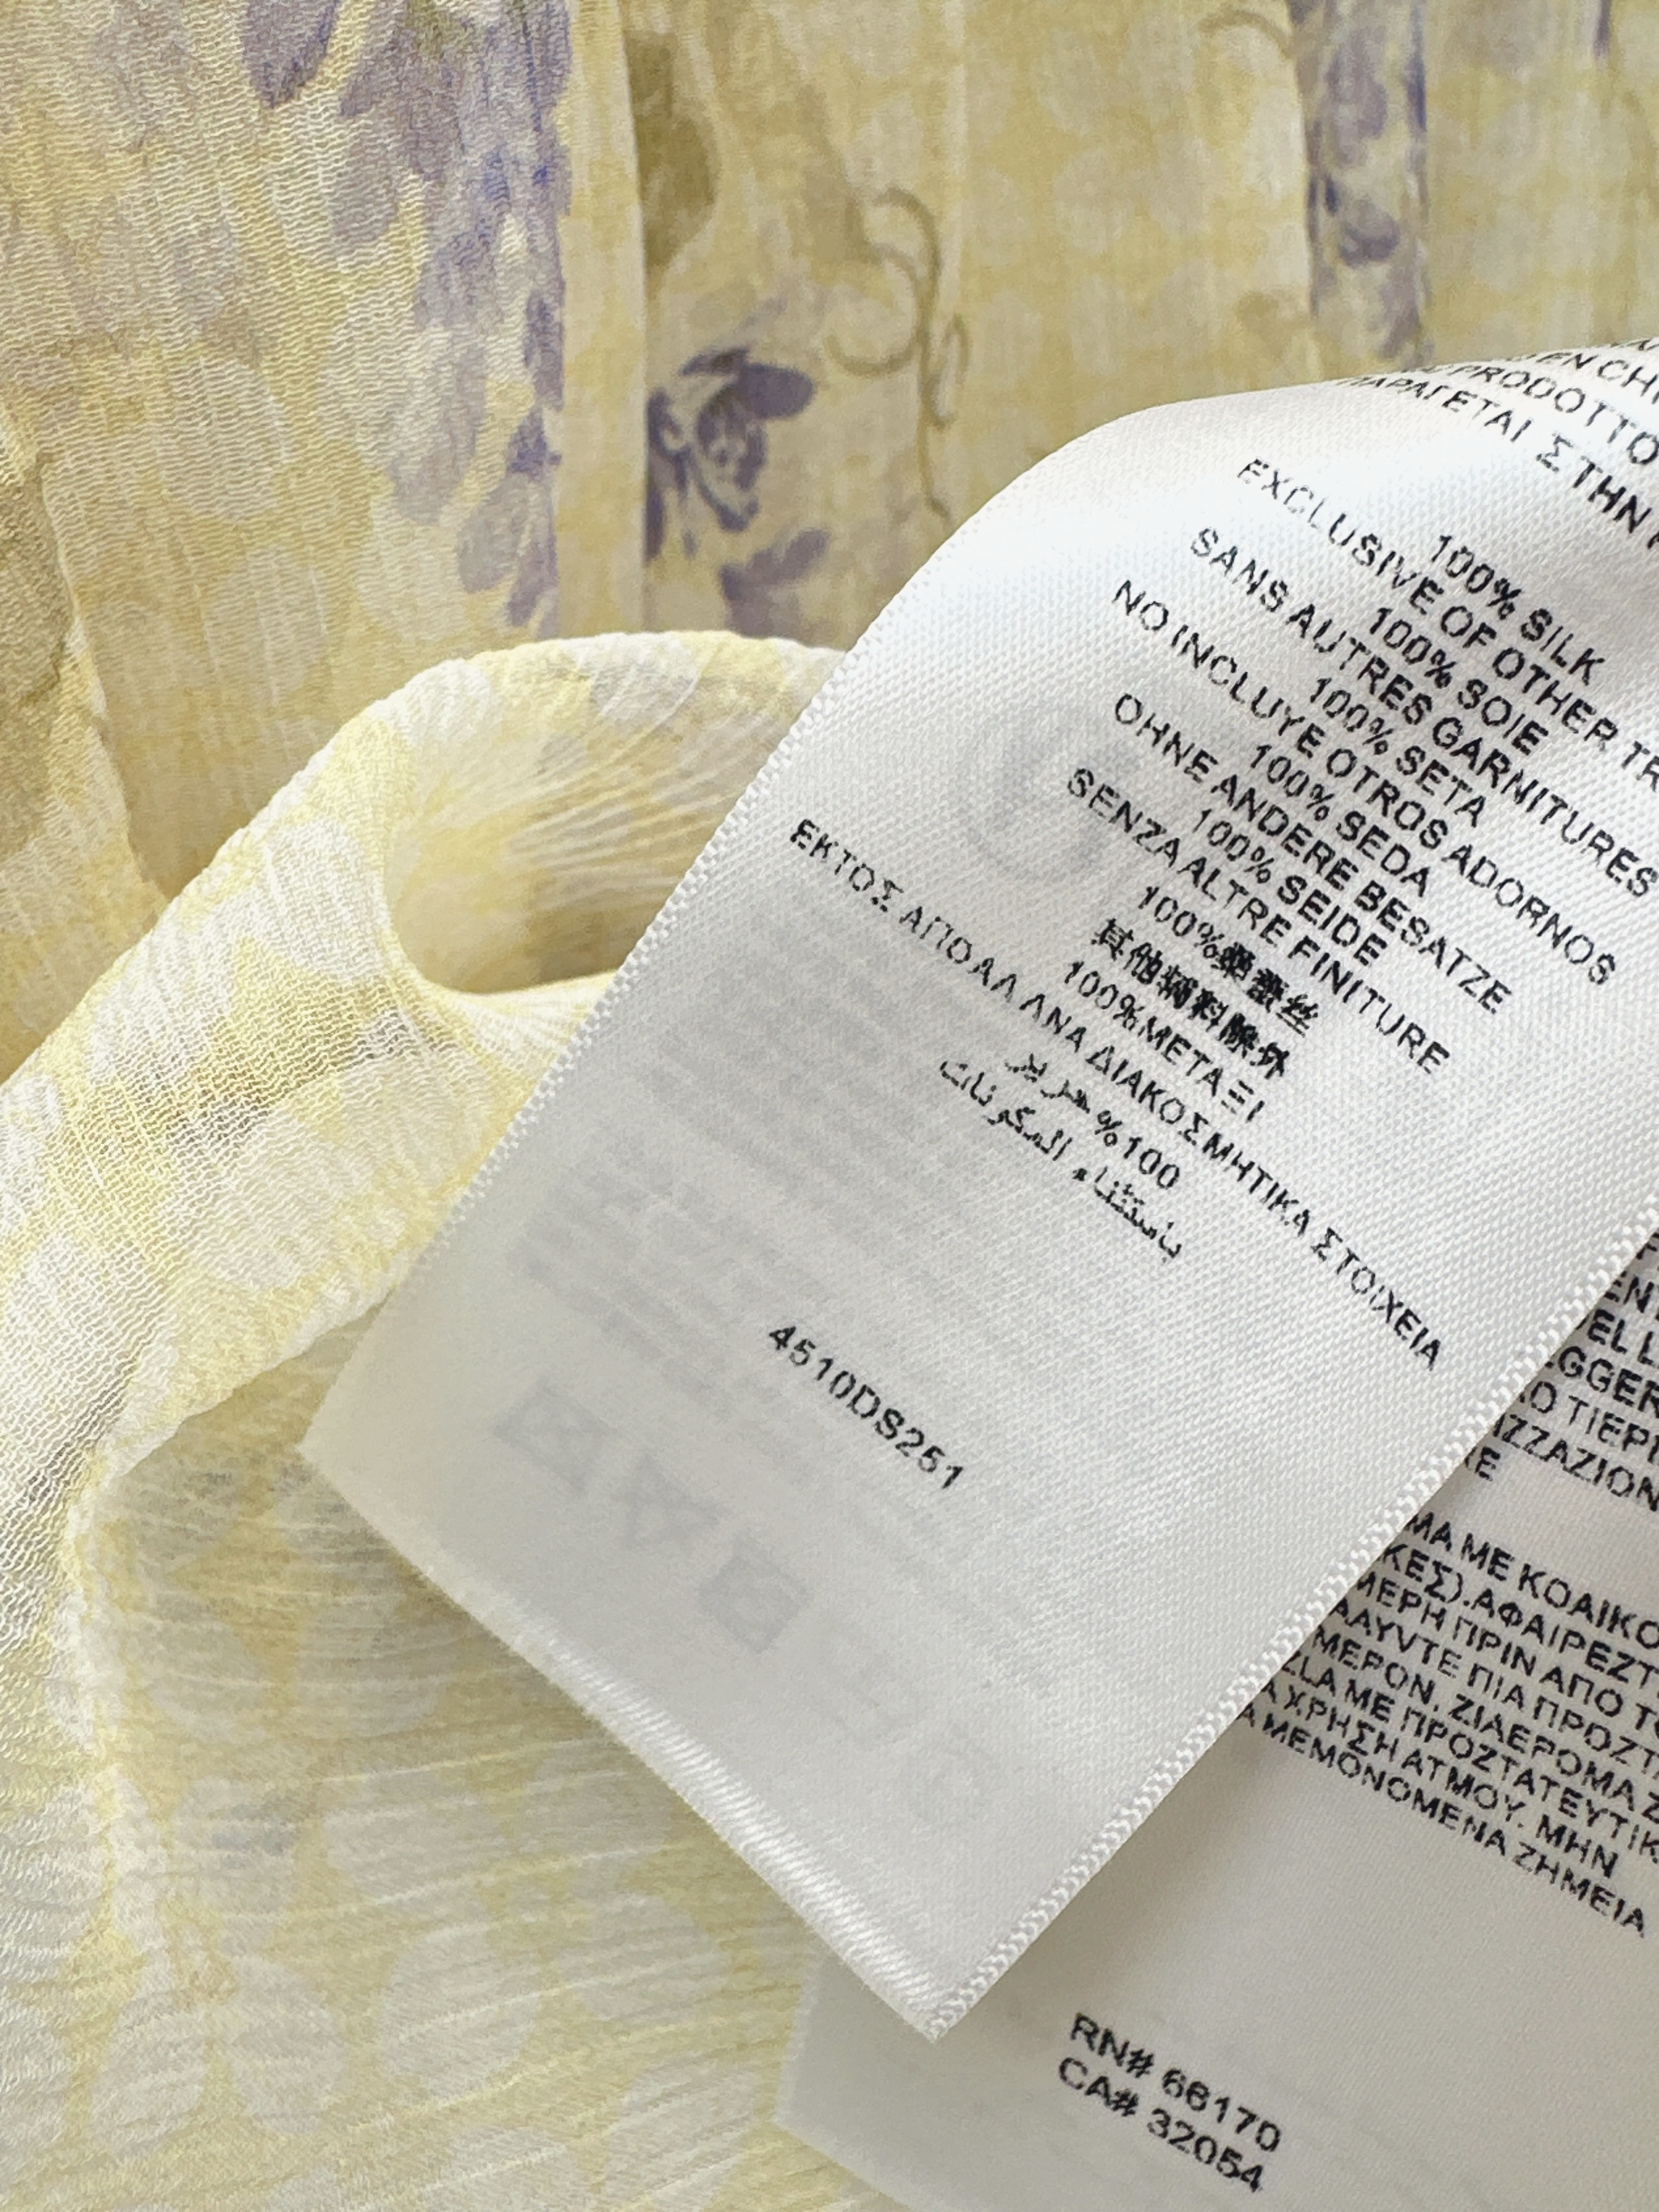 EN CHI
PRODOTTO
ΠΑΡΑΓΕΤΑΙ ΣΤΗΝ
100% SILK
EXCLUSIVE OF OTHER TR
100% SOIE
SANS AUTRES GARNITURES
100% SETA
NO INCLUYE OTROS ADORNOS
100% SEDA
OHNE ANDERE BESATZE
100% SEIDE
SENZA ALTRE FINITURE
100%桑蚕丝
其他辅料除外
100%ΜΕΤΑΞΙ
ΕΚΤΟΣ ΑΠΟ ΑΛ ΛΝΑ ΔΙΑΚΟΣΜΗΤΙΚΑ ΣΤΟΙΧΕΙΑ
100% حرير
باستثناء المكونات
4510DS251
ENT
EL L
GGER
ΤΙΕΡΙ
IZZAZION
RE
ΜΑ ΜΕ ΚΟΛΙΚΟ
ΚΕΣ).ΑΦΑΙΡΕΖΤ
ΜΕΡΗ ΠΡΙΝ ΑΠΟ ΤΟ
ΛΑΥVΤΕ ΠΙΑ ΠΡΟΖΤ
ΜΕΡΟΝ. ΖΙΛΕΡΟΜΑ Ζ
ΖLΑ ΜΕ ΠΡΟΖΤΑΤΕΥΤΙΚ
Α ΧΡΗΣΗ ΑΤΜΟΥ. ΜΗΝ
Α ΜΕΜΟΝΟΜΕΝΑ ΖΗΜΕΙΑ
RN# 66170
CA# 32054